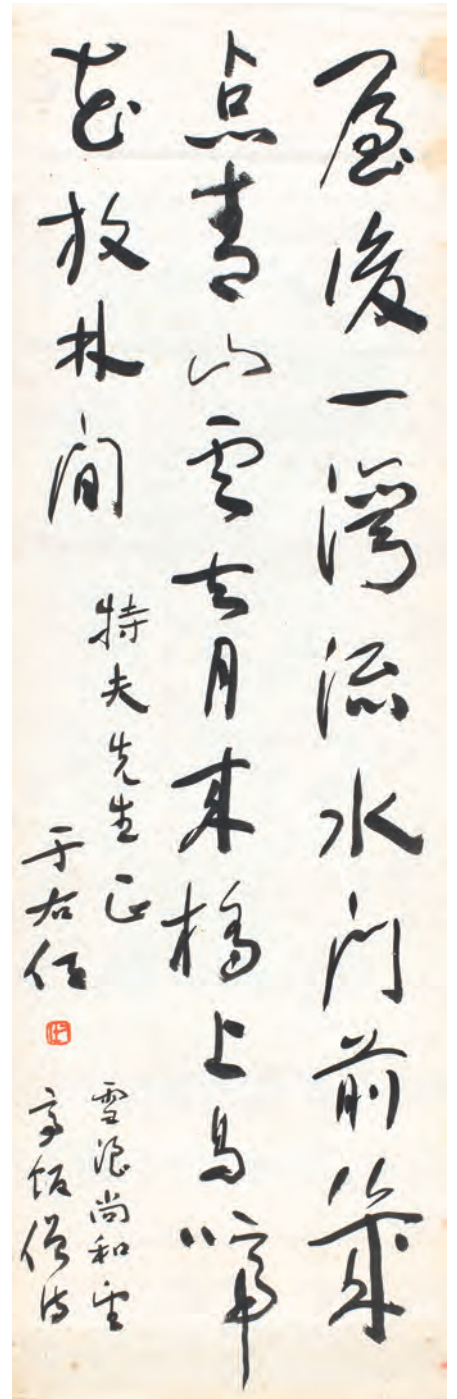 屋後一灣流水門前幾
点青山雲去月来橋上鳥啼
花放林間
特夫先生正
于右任
雪浪尚和雲
亭飯僧詩